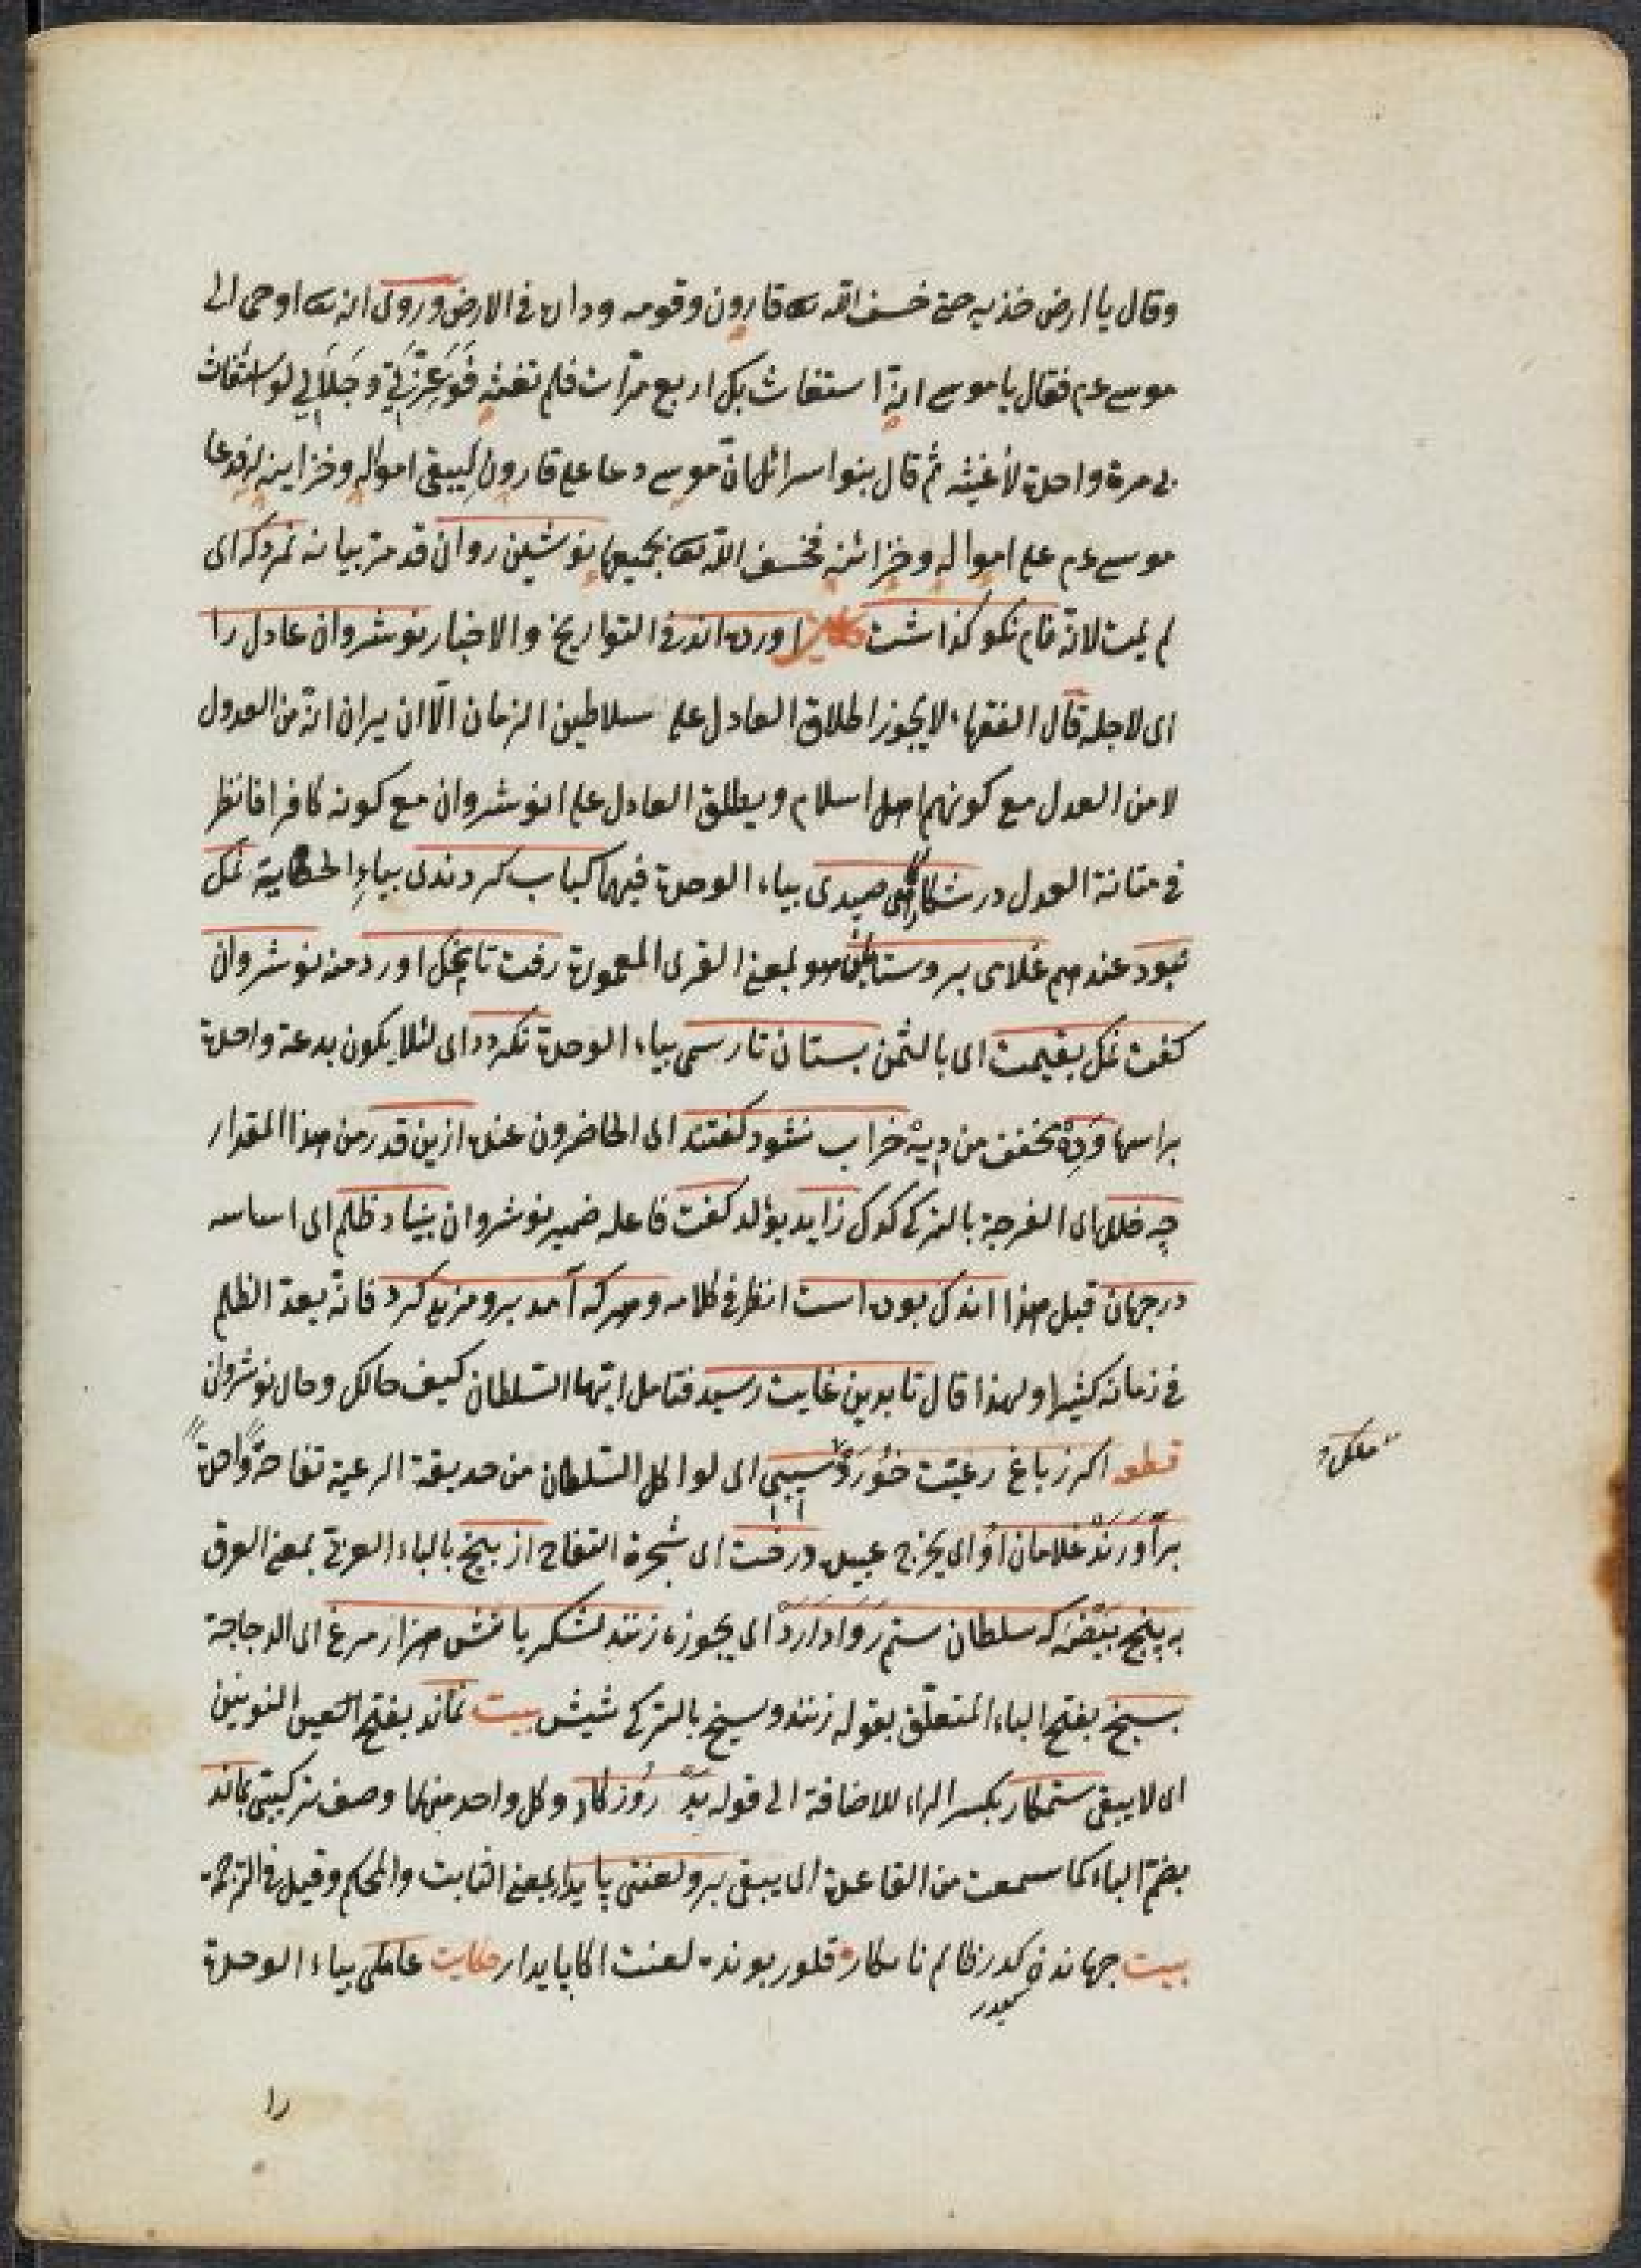 وقال يا ارض خذيه حتى خسف الله تعا قارون وقومه وداره فى الارض وروى انه تعا اوحى الى
موسى عم فقال يا موسى انه استغاث بك اربع مرّات فلم تغثه فَوَعِزَّتِى وجَلَالِى لو استغاث
بى مرة واحدة لأغيثه ثم قال بنوا اسرائل ان موسى دعا على قارون ليبقى امواله وخزاينه له فدعا
موسى عم على امواله وخزائنه فخسف الله تعا بجميعها نوشين روان قد مرّ بيانه نمرد كه اى
لم يمت لانه نام نكو كذاشت حكايت اورده اند فى التواريخ والاخبار نوشروان عادل را
اى لاجله قال الفقهاء لا يجوز اطلاق العادل على سلاطين الزمان الّا ان يراد انّه من العدول
لا من العدل مع كونهم اهل اسلام ويطلق العادل على انوشروان مع كونه كافرا فانظر
فى متانة العدل در شكارگاهى صيدى بياء الوحدة فيهما كباب كردندى بياءِ الحكاية نمك
نبود عندهم غلامى بروستا هو بمعنى القرى المعمورة رفت تا نمك اورد منه نوشروان
كفت نمك بقيمت اى بالثمن بستان تا رسمى بياء الوحدة نكردد اى لئلا يكون بدعة واحدة
براسها وَدِهْ مخفف من ديه خراب نشود كفتند اى الحاضرون عنده ازين قدر من هذا المقدار
چه خلل اى الفرجة بالتركى كدك زايد يؤلد كفت فاعله ضمير نوشروان بنياد ظلم اى اساسه
در جهان قبل هذا اندك بوده است انظر فى كلامه وهركه آمد برو مزيد كرد فانّه يعدّ الظلم
فى زمانه كثيرا ولهذا قال تا بدين غايت رسيد فتامل ايّها السّلطان كيف حالك وحال نوشروان
قطعه اكر ز باغ رعيّت خُورَدْ سيبى اى لو اكل السّلطان من حديقة الرعية تفاحة واحدة
برآوَرَنْدْ غلامان اُو اى يخرج عبيده درخت اى شجرة التفاح از بيخ بالباء العربى بمعنى العرق
به پنج بَيْضَه كه سلطان ستم رَوَا دَارَدْ اى يجوزه زنند لشكريانش هزار مرغ اى الدجاجة
بسيخ بفتح الباء المتعلّق بقوله زنند وسيخ بالتركى شيش بيت نماند بفتح النونين
اى لا يبقى ستمكار بكسر الراء للاضافة الى قوله بَدْ رُوزكار وكل واحد منهما وصف تركيبى بماند
بضم الباء كما سمعت من القاعدة اى يبقى برو لعنتى پايدار بمعنى الثابت والمحكم وقيل فى الترجمة
بيت جهاندن كدر ظالم نابكار قلور بوند لعنت اكا پايدار حكايت عاملى بياء الوحدة
را